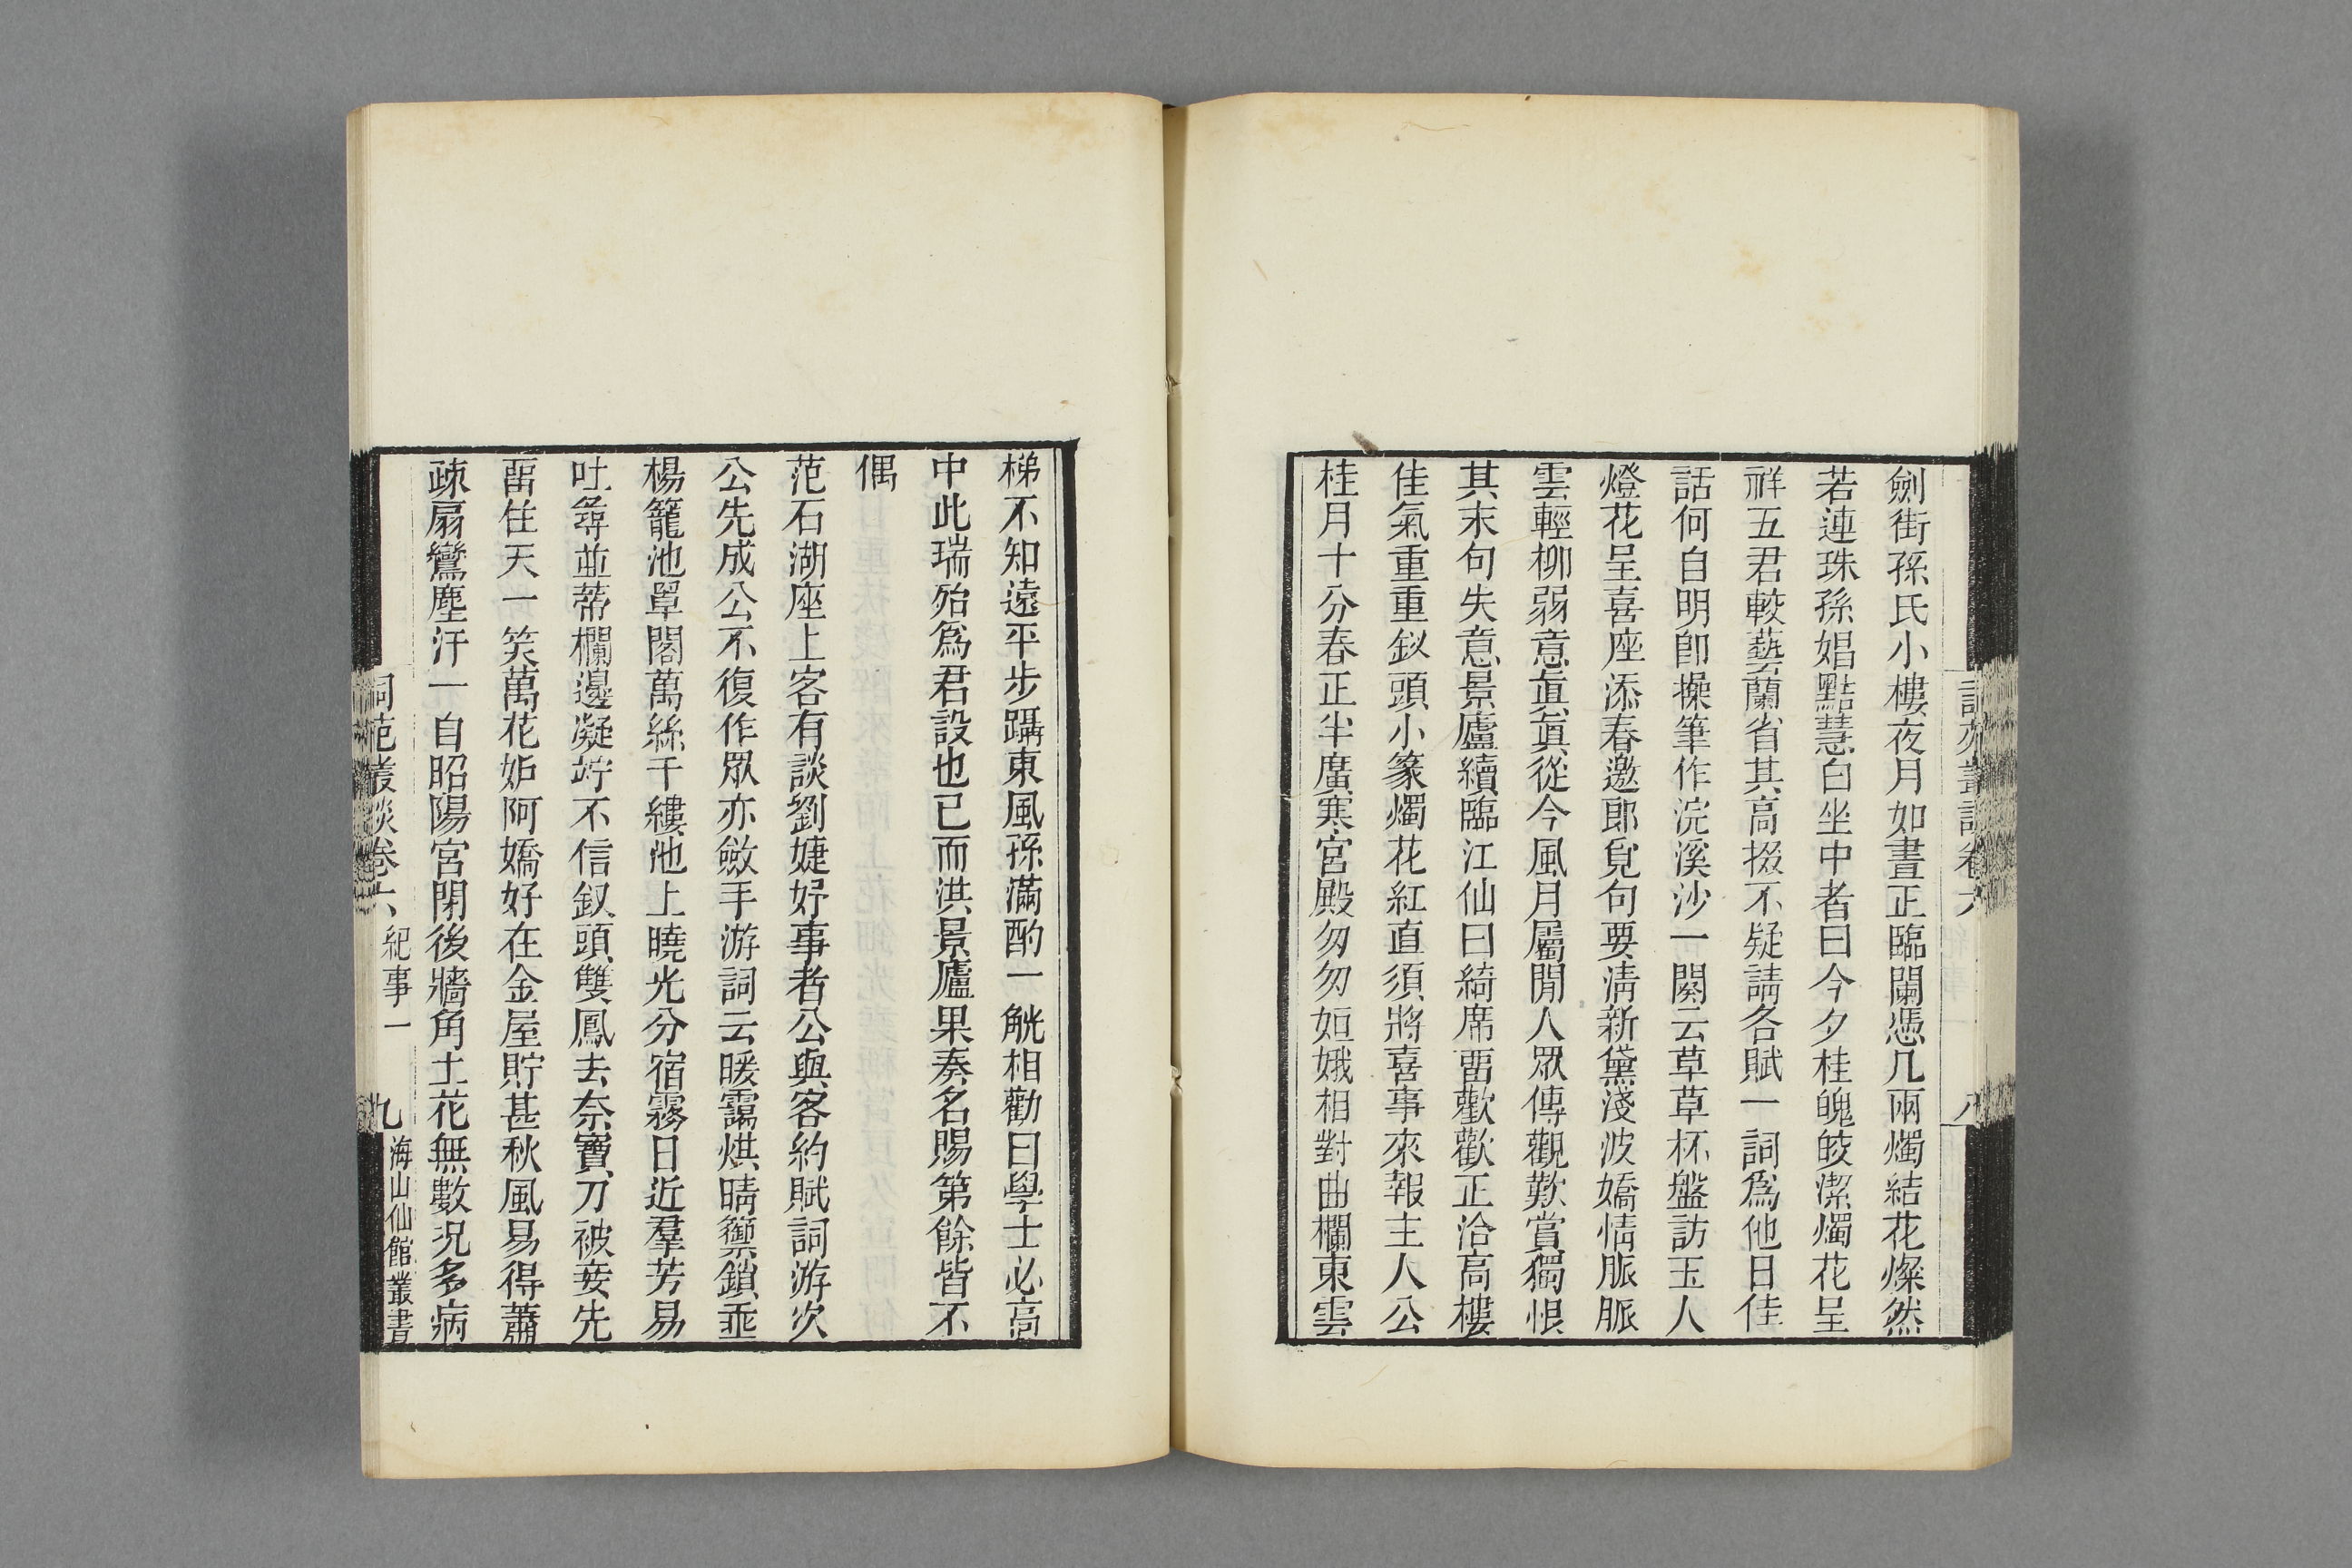 劍街孫氏小樓夜月如晝正臨闌憑几兩燭結花燦然
若連珠孫娼黠慧白坐中者曰今夕桂魄皎潔燭花呈
祥五君較藝蘭省其高掇不疑請各賦一詞爲他日佳
話何自明卽操筆作浣溪沙一闋云草草杯盤訪玉人
燈花呈喜座添春邀郎覓句要淸新黛淺波嬌情脈脈
雲輕柳弱意眞眞從今風月屬閒人眾傳觀歎賞獨恨
其末句失意景廬續臨江仙曰綺席畱歡歡正洽高樓
佳氣重重釵頭小篆燭花紅直須將喜事來報主人公
桂月十分春正半廣寒宮殿匆匆姮娥相對曲欄東雲
梯不知遠平步躡東風孫滿酌一觥相勸曰學士必高
中此瑞殆爲君設也已而洪景廬果奏名賜第餘皆不
偶
范石湖座上客有談劉婕妤事者公與客約賦詞游次
公先成公不復作眾亦斂手游詞云暖靄烘晴籞鎖垂
楊籠池罩閣萬絲千縷池上曉光分宿霧日近羣芳易
吐尋並蔕欄邊凝竚不信釵頭雙鳳去奈寶刀被妾先
畱住天一笑萬花妒阿嬌好在金屋貯甚秋風易得蕭
疎扇鸞塵汙一自昭陽宮閉後牆角土花無數況多病
詞苑叢談卷六 紀事一 九 海山仙館叢書